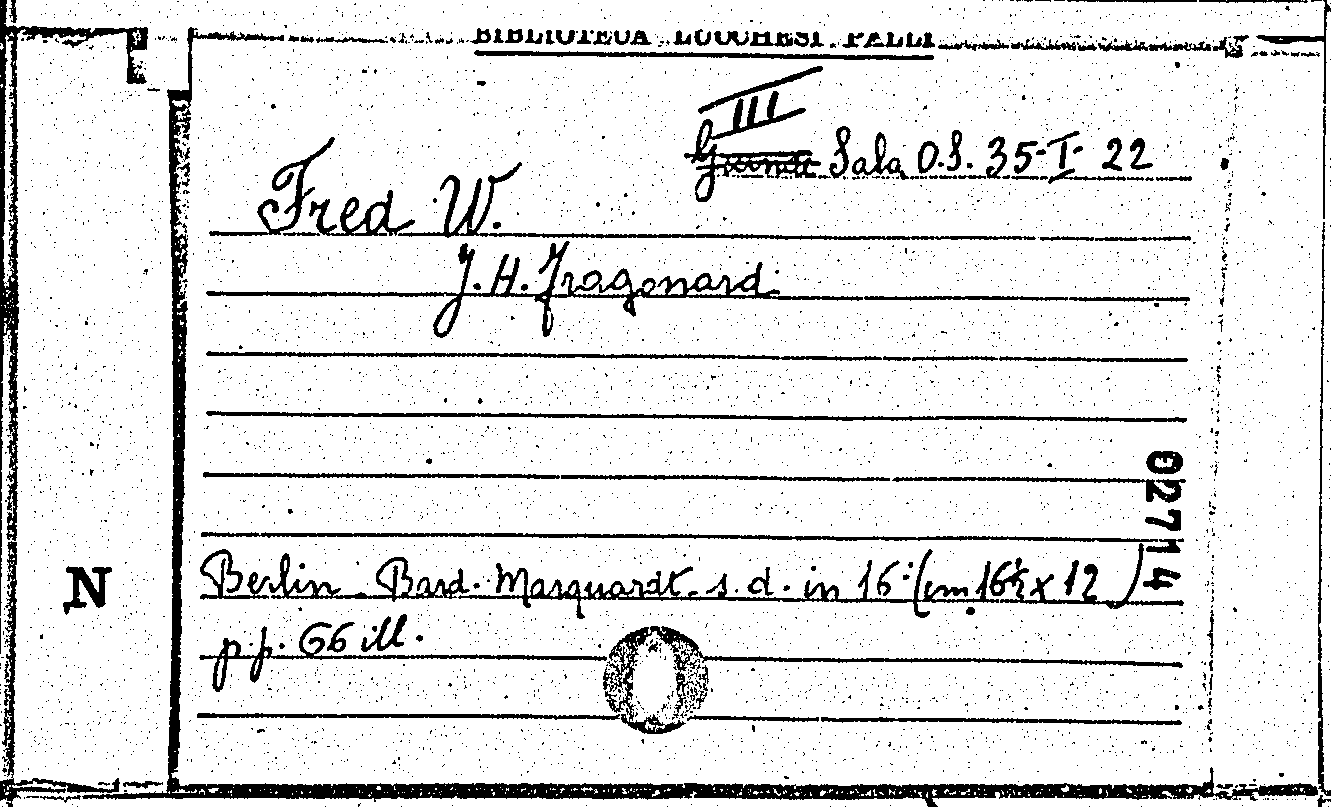 BIBLIOTECA LUCCHESI PALLI
III
Sala O.S. 35-I- 22
Fred W.
J. H. Fragonard
02714
N
Berlin. Bard. Marquardt. s. d. in 16° (cm 16½ x 12)
p.p. 66 ill.